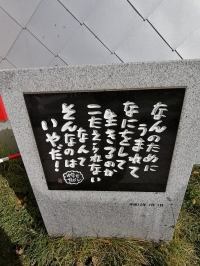 なんのために
うまれて
なにをして
生きるのか
こたえられない
なんて
そんなのは
いやだ!